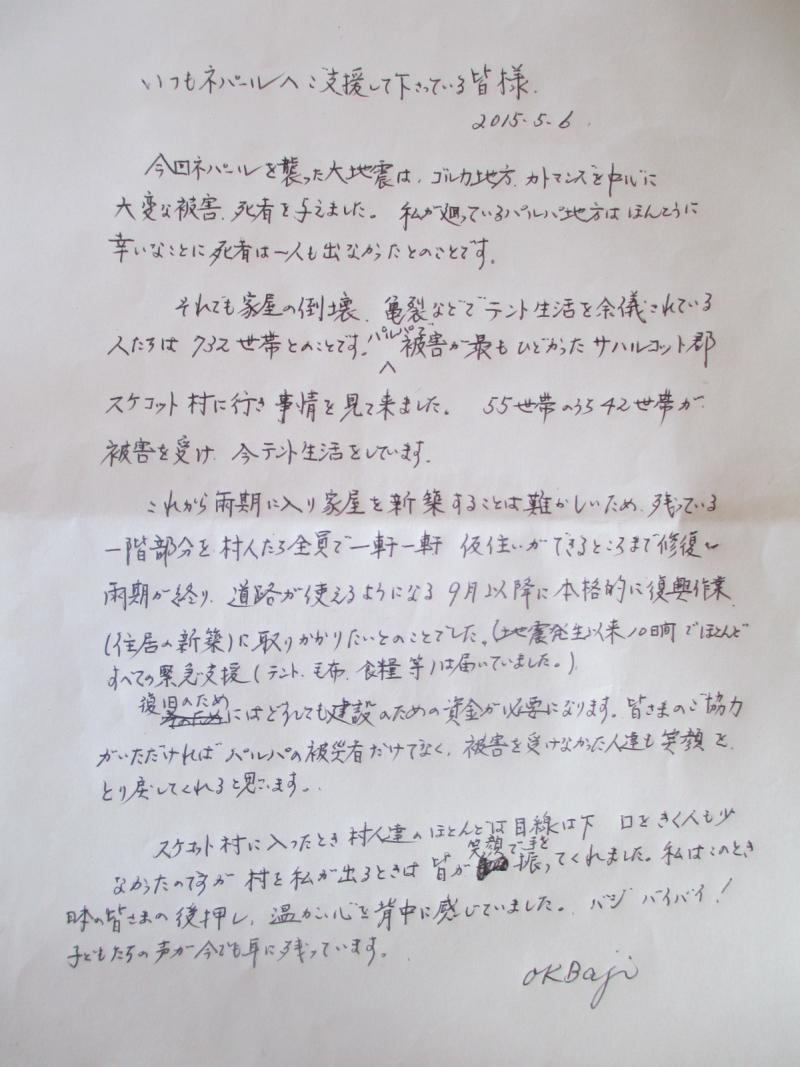 いつもネパールへご支援して下さっている皆様.
2015.5.6.
今回ネパールを襲った大地震は、ゴルカ地方、カトマンズを中心に
大変な被害、死者を与えました。私が廻っているパルパ地方はほんとうに
幸いなことに死者は一人も出なかったとのことです。
それでも家屋の倒壊、亀裂などでテント生活を余儀されている
人たちは732世帯とのことです。パルパで被害が最もひどかったサハルコット郡
スケコット村に行き事情を見て来ました。55世帯のうち42世帯が
被害を受け、今テント生活をしています。
これから雨期に入り家屋を新築することは難かしいため、残っている
一階部分を村人たち全員で一軒一軒 仮住いができるところまで修復し
雨期が終り、道路が使えるようになる9月以降に本格的に復興作業
(住居の新築)に取りかかりたいとのことでした。(地震発生以来10日間でほとんど
すべての緊急支援(テント、毛布、食糧等)は届いていました。)
復旧のためにはどうしても建設のための資金が必要になります。皆さまのご協力
がいただければパルパの被災者だけでなく、被害を受けなかった人達も笑顔を
とり戻してくれると思います。
スケコット村に入ったとき村人達のほとんどは目線は下 口をきく人も少
なかったのですが 村を私が出るときは皆が笑顔で手を振ってくれました。私はこのとき
日本の皆さまの後押し、温かい心を背中に感じていました。バジ バイバイ!
子どもたちの声が今でも耳に残っています。
OKBaji